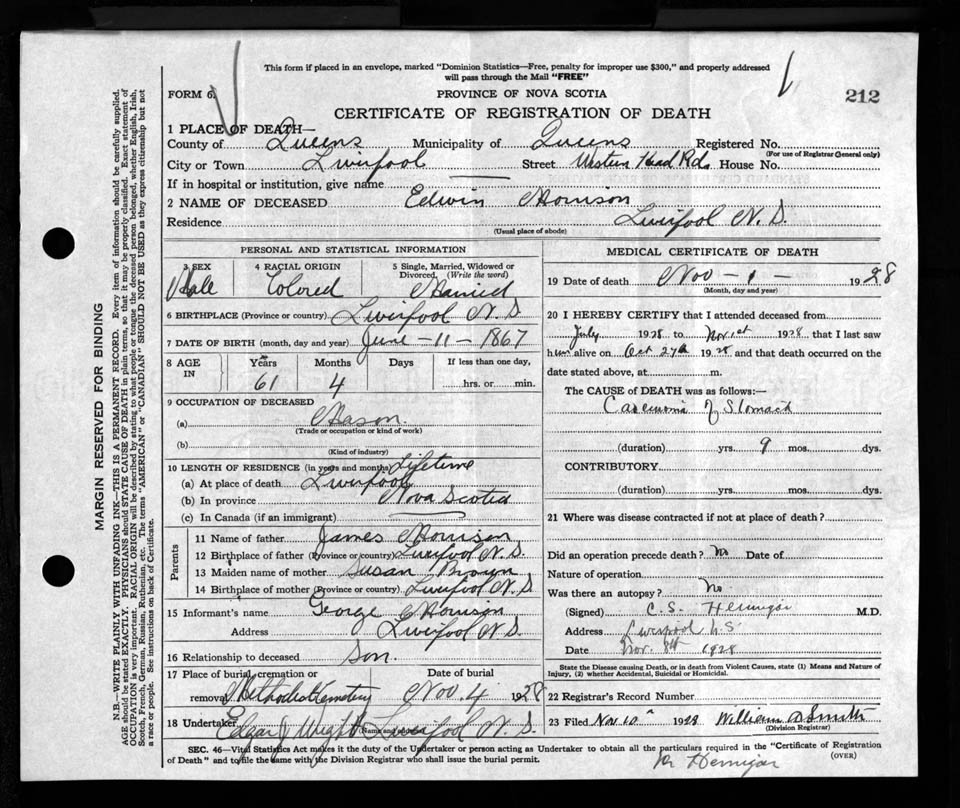 This form if placed in an envelope, marked "Dominion Statistics—Free, penalty for improper use $300," and properly addressed
will pass through the Mail "FREE"
FORM 6.
PROVINCE OF NOVA SCOTIA
212
CERTIFICATE OF REGISTRATION OF DEATH
1 PLACE OF DEATH—
County of Queens Municipality of Queens Registered No.
(For use of Registrar General only)
City or Town Liverpool Street Western Head Rd. House No.
If in hospital or institution, give name
2 NAME OF DECEASED Edwin Morrison
Residence Liverpool N.S.
(Usual place of abode)
PERSONAL AND STATISTICAL INFORMATION
3 SEX Male
4 RACIAL ORIGIN Colored
5 Single, Married, Widowed or Divorced, (Write the word) Married
6 BIRTHPLACE (Province or country) Liverpool N.S.
7 DATE OF BIRTH (month, day and year) June - 11 - 1867
8 AGE IN Years 61 Months 4 Days If less than one day, hrs. or min.
9 OCCUPATION OF DECEASED
(a) Mason
(Trade or occupation or kind of work)
(b)
(Kind of industry)
10 LENGTH OF RESIDENCE (in years and months) Lifetime
(a) At place of death Liverpool
(b) In province Nova Scotia
(c) In Canada (if an immigrant)
Parents
11 Name of father James Morrison
12 Birthplace of father (Province or country) Liverpool N.S.
13 Maiden name of mother Susan Brown
14 Birthplace of mother (Province or country) Liverpool N.S.
15 Informant's name George Morrison
Address Liverpool N.S.
16 Relationship to deceased Son.
17 Place of burial, cremation or removal Methodist Cemetery
Date of burial Nov. 4 1928
18 Undertaker Edgar J Wright Liverpool N.S.
(Name and address)
MEDICAL CERTIFICATE OF DEATH
19 Date of death Nov - 1 - 1928
(Month, day and year)
20 I HEREBY CERTIFY that I attended deceased from
July 1928 to Nov 1st 1928 that I last saw
him alive on Oct 27th 1928 and that death occurred on the
date stated above, at m.
The CAUSE of DEATH was as follows:—
Carcinoma of Stomach
(duration) yrs. 9 mos. dys.
CONTRIBUTORY
(duration) yrs. mos. dys.
21 Where was disease contracted if not at place of death?
Did an operation precede death? No Date of
Nature of operation
Was there an autopsy? No
(Signed) C. S. Hennigar M.D.
Address Liverpool N.S.
Date Nov. 8th 1928
State the Disease causing Death, or in death from Violent Causes, state (1) Means and Nature of
Injury, (2) whether Accidental, Suicidal or Homicidal.
22 Registrar's Record Number
23 Filed Nov 10 1928 William Smith
(Division Registrar)
SEC. 46—Vital Statistics Act makes it the duty of the Undertaker or person acting as Undertaker to obtain all the particulars required in the "Certificate of Registration
of Death" and to file the same with the Division Registrar who shall issue the burial permit.
(OVER)
Dr Hennigar
MARGIN RESERVED FOR BINDING
N.B.—WRITE PLAINLY WITH UNFADING INK—THIS IS A PERMANENT RECORD. Every item of information should be carefully supplied.
AGE should be stated EXACTLY. PHYSICIANS should STATE CAUSE OF DEATH in plain terms, so that it may be properly classified. Exact statement of
OCCUPATION is very important. RACIAL ORIGIN will be described by stating to what people or tongue the deceased person belonged, whether English, Irish,
Scotch, French, German, Russian, Ruthenian, etc. The terms "AMERICAN" or "CANADIAN" SHOULD NOT BE USED as they express citizenship but not
a race or people. See instructions on back of Certificate.